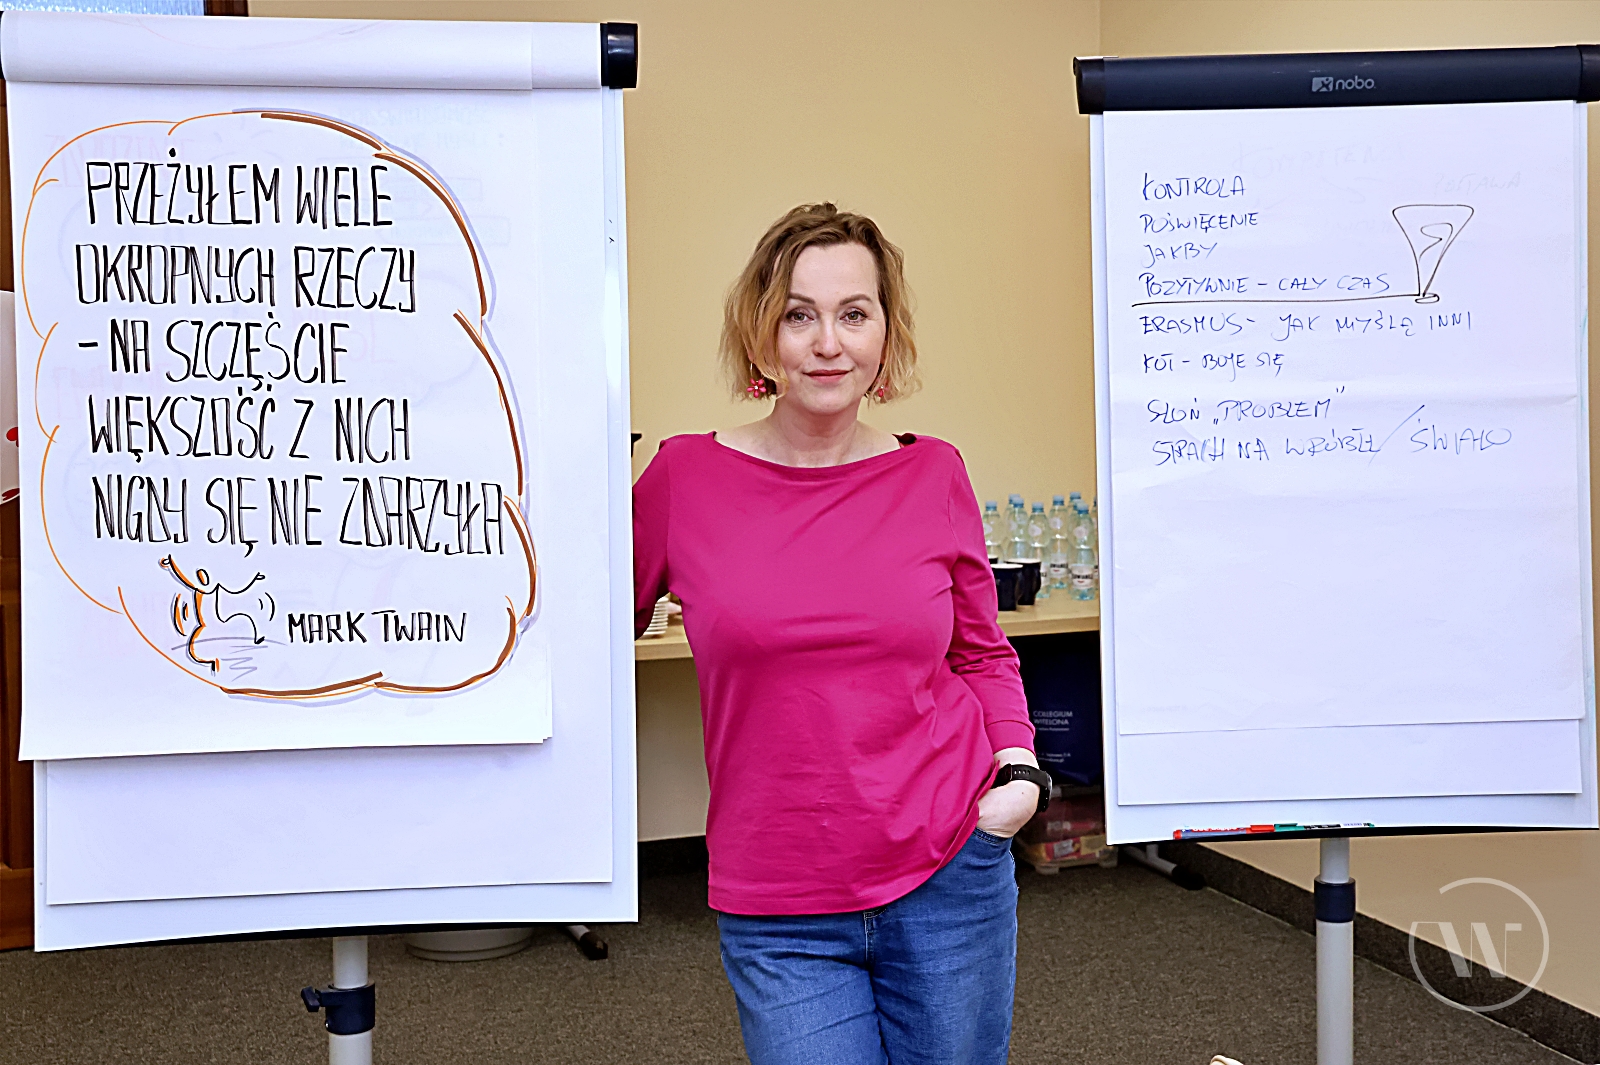 PRZEŻYŁEM WIELE
OKROPNYCH RZECZY
- NA SZCZĘŚCIE
WIĘKSZOŚĆ Z NICH
NIGDY SIĘ NIE ZDARZYŁA
MARK TWAIN
nobo
KONTROLA
POŚWIĘCENIE
JAKBY
POZYTYWNIE - CAŁY CZAS
ERASMUS - JAK MYŚLĄ INNI
KOT - BOJE SIĘ
SŁOŃ „PROBLEM"
STRACH NA WRÓBLE / ŚWIATŁO
COLLEGIUM
WITELONA
W